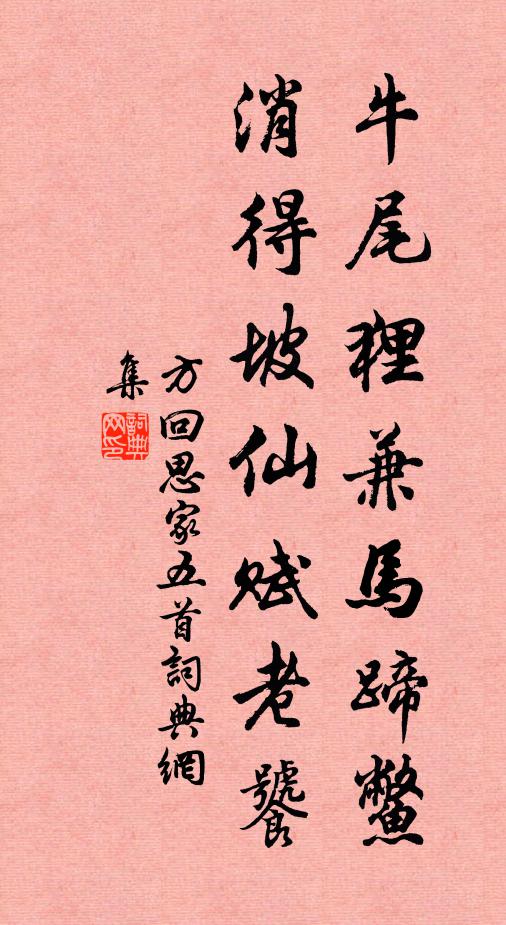 牛尾狸兼馬蹄鱉
消得坡仙賦老饕
方回思家五首詞典網
集
詞典網印